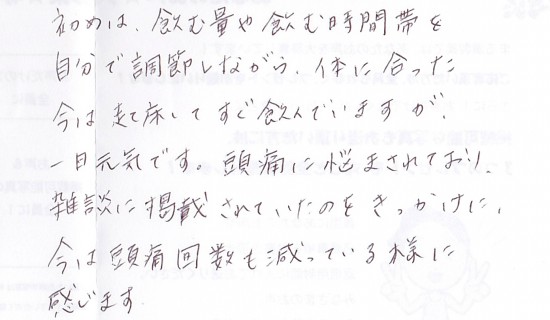 初めは、飲む量や飲む時間帯を
自分で調節しながら、体に合った
今は起床してすぐ飲んでいますが、
一日元気です。頭痛に悩まされており、
雑談に掲載されていたのをきっかけに、
今は頭痛回数も減っている様に
感じます。